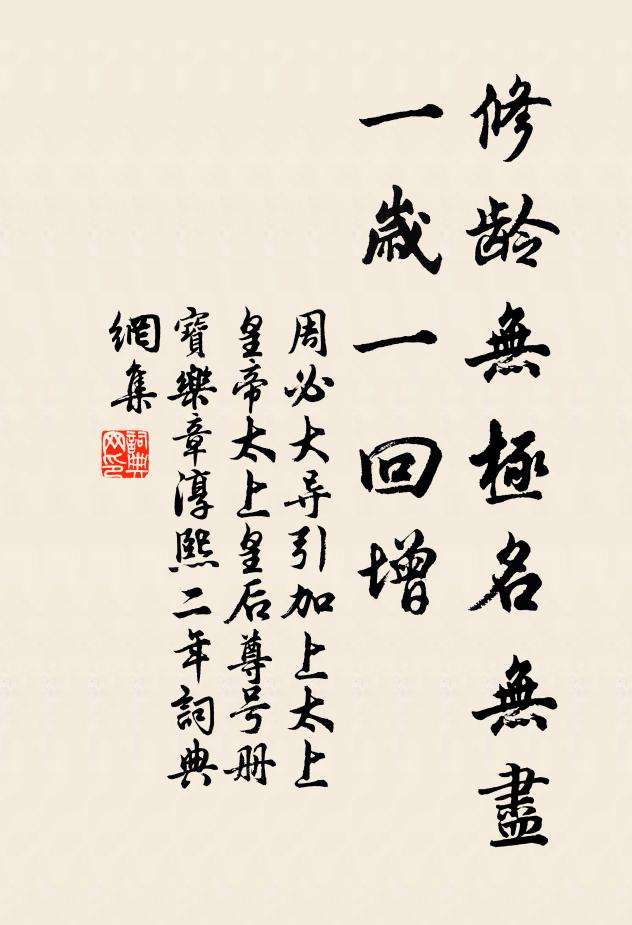 修龄無極名無盡
一歲一回增
周必大导引加上太上
皇帝太上皇后尊号册
寶樂章淳熙二年詞典
網集
詞典
网印